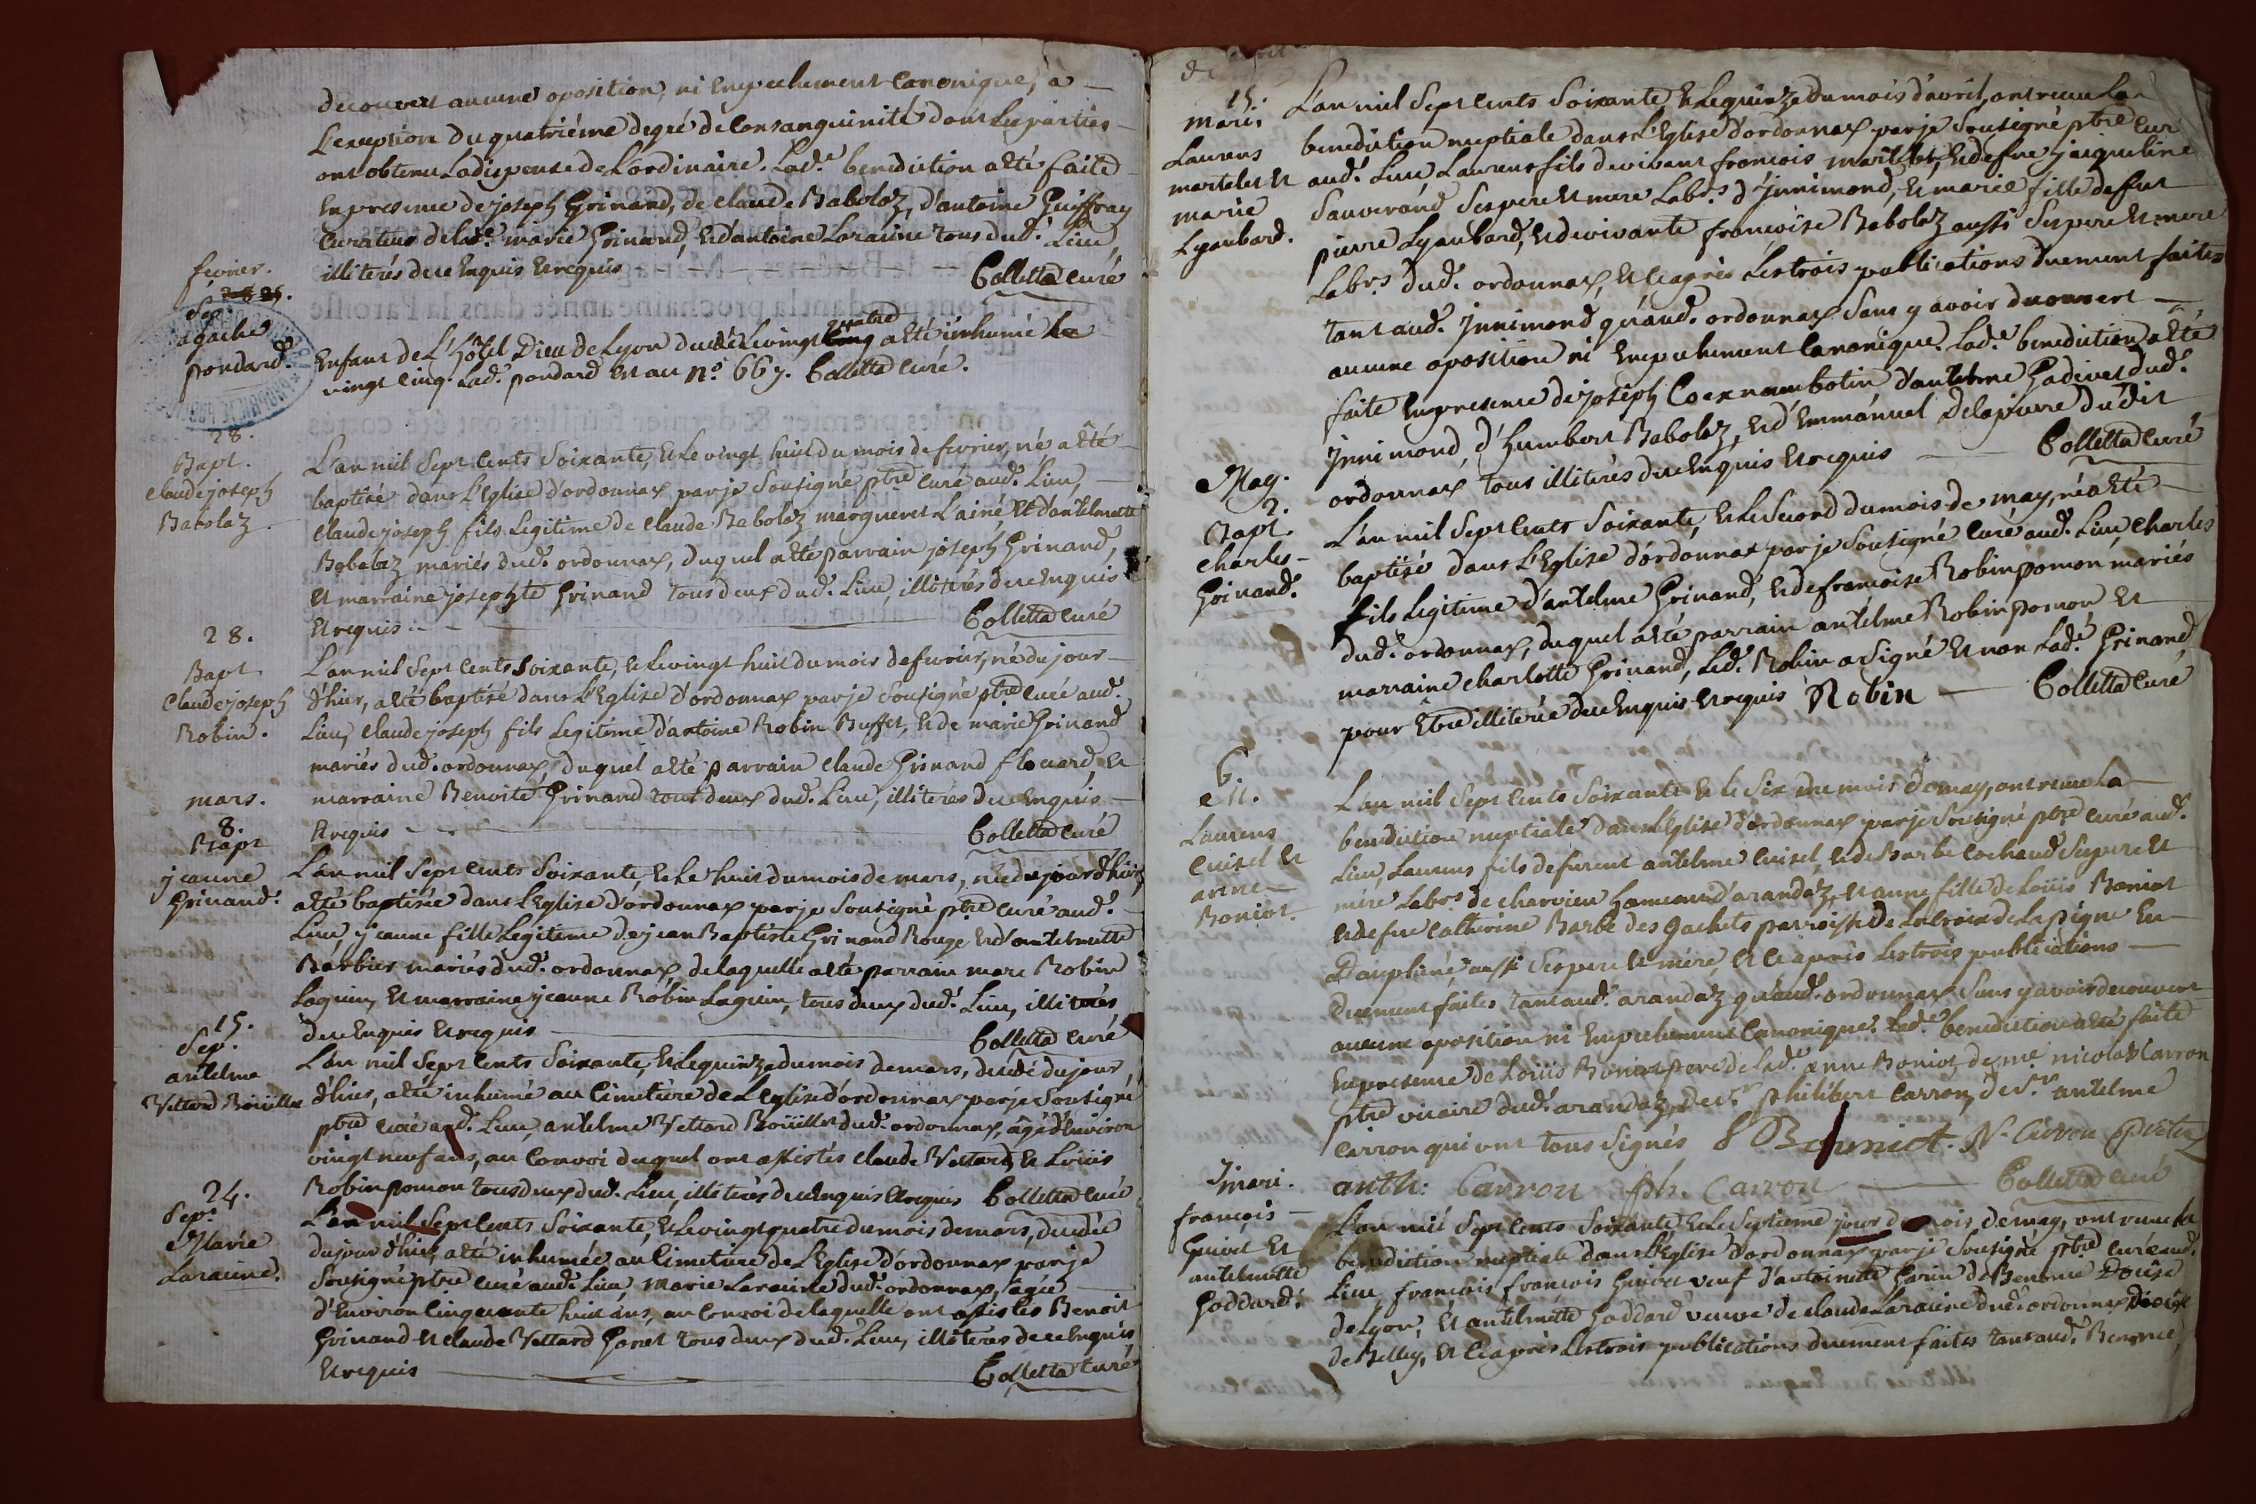 decouvert aucune oposition, ni Empechement Canonique, a
L'exeption du quatriéme degré de Consanguinité dont Les parties
ont obtenu La dispense de L'ordinaire. Lad.e benediction a été faite
En presence de joseph Grinand, de claude Babolaz, d'antoine Guiffray
Curateur de lad.e marie Grinand, et d'antoine Laraime tous dud.t Lieu
illiterés de ce Enquis et requis Colletta curé
fevrier.
25.
Sep.
agathe
pondard.
Enfant de L'hôtel Dieu de Lyon décédé Le vingt quatre a été inhumé Le
vingt cinq. Lad.e pondard est au n.o 667. Colletta curé.
28.
Bapt.
claude joseph
Babolaz.
L'an mil Sept Cents Soixante, et Le vingt huit du mois de fevrier, né a été
baptisé dans L'Eglise d'ordonnax par je Sousigné ptre curé aud.t Lieu,
claude joseph fils Legitime de claude Babolaz margueret L'ainé et d'antelmette
Babolaz mariés dud.t ordonnax, duquel a été parrain joseph Grinand,
et marraine josephte Grinand tous deux dud.t Lieu, illiterés de ce Enquis
et requis Colletta curé
28.
Bapt
Claude joseph
Robin.
L'an mil Sept Cents Soixante, et Le vingt huit du mois de fevrier, né du jour
d'hier, a été baptisé dans L'Eglise d'ordonnax par je Sousigné ptre curé aud.t
Lieu, claude joseph fils Legitime d'antoine Robin Buffet, et de marie Grinand
mariés dud.t ordonnax, duquel a été parrain claude Grinand flouard, et
marraine Benoite Grinand tous deux dud.t Lieu, illiterés de ce Enquis
et requis Colletta curé
mars.
8.
Bapt
jeanne
Grinand.
L'an mil Sept Cents Soixante, et Le huit du mois de mars, née du jour d'hier,
a été baptisée dans L'Eglise d'ordonnax par je Sousigné ptre curé aud.t
Lieu, jeanne fille Legitime de jean Baptiste Grinand Rouge et d'antelmette
Barbier mariés dud.t ordonnax, de laquelle a été parrain marc Robin
Laguin, et marraine jeanne Robin Laguin, tous deux dud.t Lieu, illiterés
de ce Enquis et requis Colletta curé
15.
Sep.
antelme
Vettard Boüillet
L'an mil Sept Cents Soixante, et Le quinze du mois de mars, décédé du jour
d'hier, a été inhumé au Cimetiere de L'Eglise d'ordonnax par je Sousigné
ptre curé aud.t Lieu, antelme Vettard Boüillet dud.t ordonnax, âgé d'Environ
vingt neuf ans, au Convoi duquel ont assistés claude Vettard, et Loüis
Robin pomon tous deux dud.t Lieu, illiterés de ce Enquis et requis Colletta curé
24.
Sep.
Marie
Laraime.
L'an mil Sept Cents Soixante, et Le vingt quatre du mois de mars, décédée
du jour d'hier, a été inhumée au Cimetiere de L'Eglise d'ordonnax par je
Sousigné ptre curé aud.t Lieu, marie Laraime dud.t ordonnax, âgée
d'Environ Cinquante huit ans, au Convoi de laquelle ont assistés Benoit
Grinand et claude Vettard Ganet tous deux dud.t Lieu, illiterés de ce Enquis
et requis Colletta curé
15.
mari.
Laurens
martelet et
marie
Lyaubard.
L'an mil Sept Cents Soixante, et Le quinze du mois d'avril, ont recu La
benediction nuptiale dans L'Eglise d'ordonnax par je Sousigné ptre cur
aud.t Lieu Laurens fils de vivant francois martelet, et de fue jaqueline
Sauverand Ses pere et mere Labr.s d'Jnnimond, et marie fille de fut
pierre Lyaubard, et de vivante francoise Babolaz aussi Ses pere et mere
Labr.s dud.t ordonnax, et ce après Les trois publications duement faites
tant aud.t Jnnimond qu'aud.t ordonnax Sans y avoir decouvert
aucune oposition ni Empechement Canonique. Lad.e benediction a été
faite En presence de joseph d'antelme Gadivet dud.t
Jnnimond, d'humbert Babolaz, et d'Emmanuel Delapierre dudit
ordonnax tous illiterés de ce Enquis et requis Colletta curé
May.
2.
Bapt.
charles
Grinand.
L'an mil Sept Cents Soixante, et Le Second du mois de may, né a été
baptisé dans L'Eglise d'ordonnax par je Sousigné curé aud.t Lieu, charles
fils Legitime d'antelme Grinand, et de francoise Robin pomon mariés
dud.t ordonnax, duquel a été parrain antelme Robin pomon et
marraine charlotte Grinand, Led.t Robin a Signé et non Lad.e Grinand,
pour Etre illiterée de ce Enquis et requis Robin Colletta curé
6.
M.
Laurens
Cuisel et
anne
Boniot.
L'an mil Sept Cents Soixante et le Six du mois de may, ont recu La
benediction nuptiale dans L'Eglise d'ordonnax par je Sousigné ptre curé aud.t
Lieu, Laurens fils de furent antelme Cuisel, et de Barbe Cochaud Ses pere et
mere Labr.s de charvieu hameau d'arandaz, et anne fille de Loüis Boniot
et de fue Catherine Barbe des Gachets parroisse de La croix de La pigne En
Dauphiné aussi Ses pere et mere, et ce après Les trois publications
duement faites tant aud.t arandaz qu'aud.t ordonnax Sans y avoir decouvert
aucune oposition ni Empechement Canonique. Lad.e benediction a été faite
En presence de Loüis Boniot pere de lad.e anne Boniot, de m.e nicolas Carron
ptre vicaire dud.t arandaz, de S.r philibert Carron, de S.r antelme
Carron qui ont tous Signés N. Carron
anth. Carron ph. Carron Colletta curé
7 mari.
françois
Guivet et
antelmette
Goddard.
L'an mil Sept Cents Soixante, et Le Septieme jour du mois de may, ont recu la
benediction nuptiale dans L'Eglise d'ordonnax par je Sousigné ptre curé aud.t
Lieu françois françois Guivet veuf d'antoinette Garin de Benonce
de Lyon, et antelmette Goddard veuve de claude Laraime dud.t ordonnax Diocèse
de Belley, et ce après Les trois publications duement faites tant aud.t Benonce,